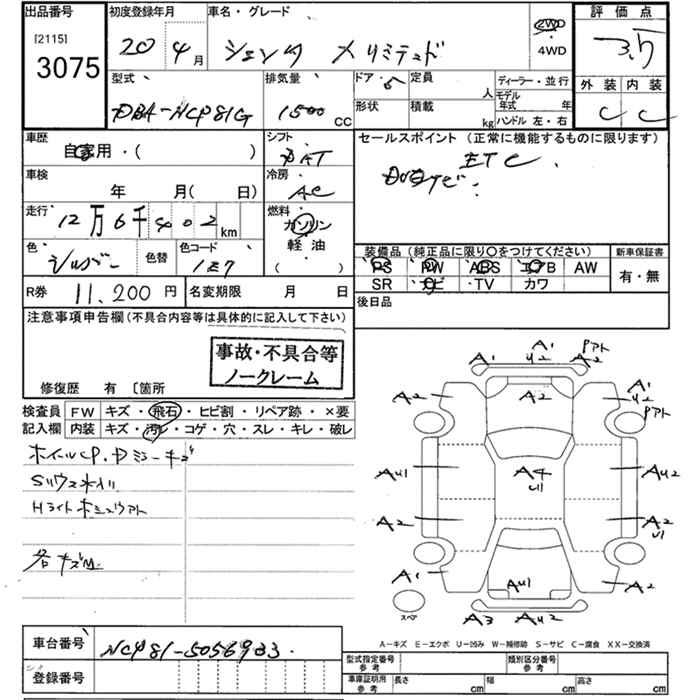 出品番号 初度登録年月 車名・グレード 評価点
[2115] 3075 20 4月 シエンタ リミテッド 2WD 4WD 3.5
型式 排気量 ドア・5 定員 人 ディーラー・並行 外装 内装
DBA-NCP81G 1500 CC 形状 積載 kg モデル年式 年 ハンドル 左・右 C C
車歴 シフト セールスポイント (正常に機能するものに限ります)
自家用・( ) AT ETC
車検 冷房
年 月( 日) AC
走行 燃料
12万6千402km ガソリン
色 色替 色コード 軽油 装備品 (純正品に限り〇をつけてください) 新車保証書
シルバー 1E7 ( ) PS PW ABS エアB AW 有・無
R券 11,200円 名変期限 月 日 SR ナビ ・TV カワ
後日品
注意事項申告欄(不具合内容等は具体的に記入して下さい)
事故・不具合等
ノークレーム
修復歴 有 〔箇所
検査員 FW キズ・飛石・ヒビ割・リペア跡・×要
記入欄 内装 キズ・汚レ・コゲ・穴・スレ・キレ・破レ
A1 A1 U2 A2 Pアト
A2 A2 A1 U2 Pアト
AU1 A4 U1 AU2
A2 A2 U1
A1 AU1 A2
A3 AU2
スペア
ホイールCP.Dミラーキズ
Hライト
各キズ
A-キズ E-エクボ U-凹み W-補修跡 S-サビ C-腐食 XX-交換済
車台番号 NCP81-5056933
型式指定番号 参考 類別区分番号 参考
登録番号 車庫証明用 参考 長さ cm 幅 cm 高さ cm